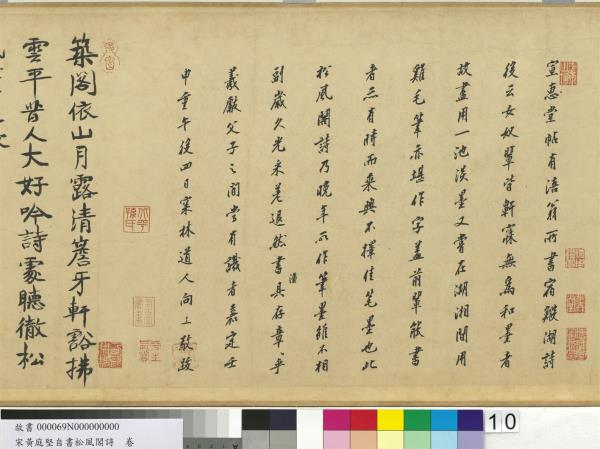 宣惠堂帖有涪翁所書宿鰕湖詩
後云女奴輩皆鼾寐無為和墨者
故盡用一池淡墨又嘗在湖湘間用
雞毛筆亦堪作字蓋前輩能書
者亦有時而乘興不擇佳筆墨也此
松風閣詩乃晚年所作筆墨雖不相
副歲久光采差退然書具存章草乎
羲獻父子之間當有識者嘉定壬
申重午後四日寀林道人向水敬跋
築閣依山月露清簷牙軒豁拂
雲平昔人大好吟詩處聽徹松
故書 000069N000000000
宋黃庭堅自書松風閣詩 卷
10